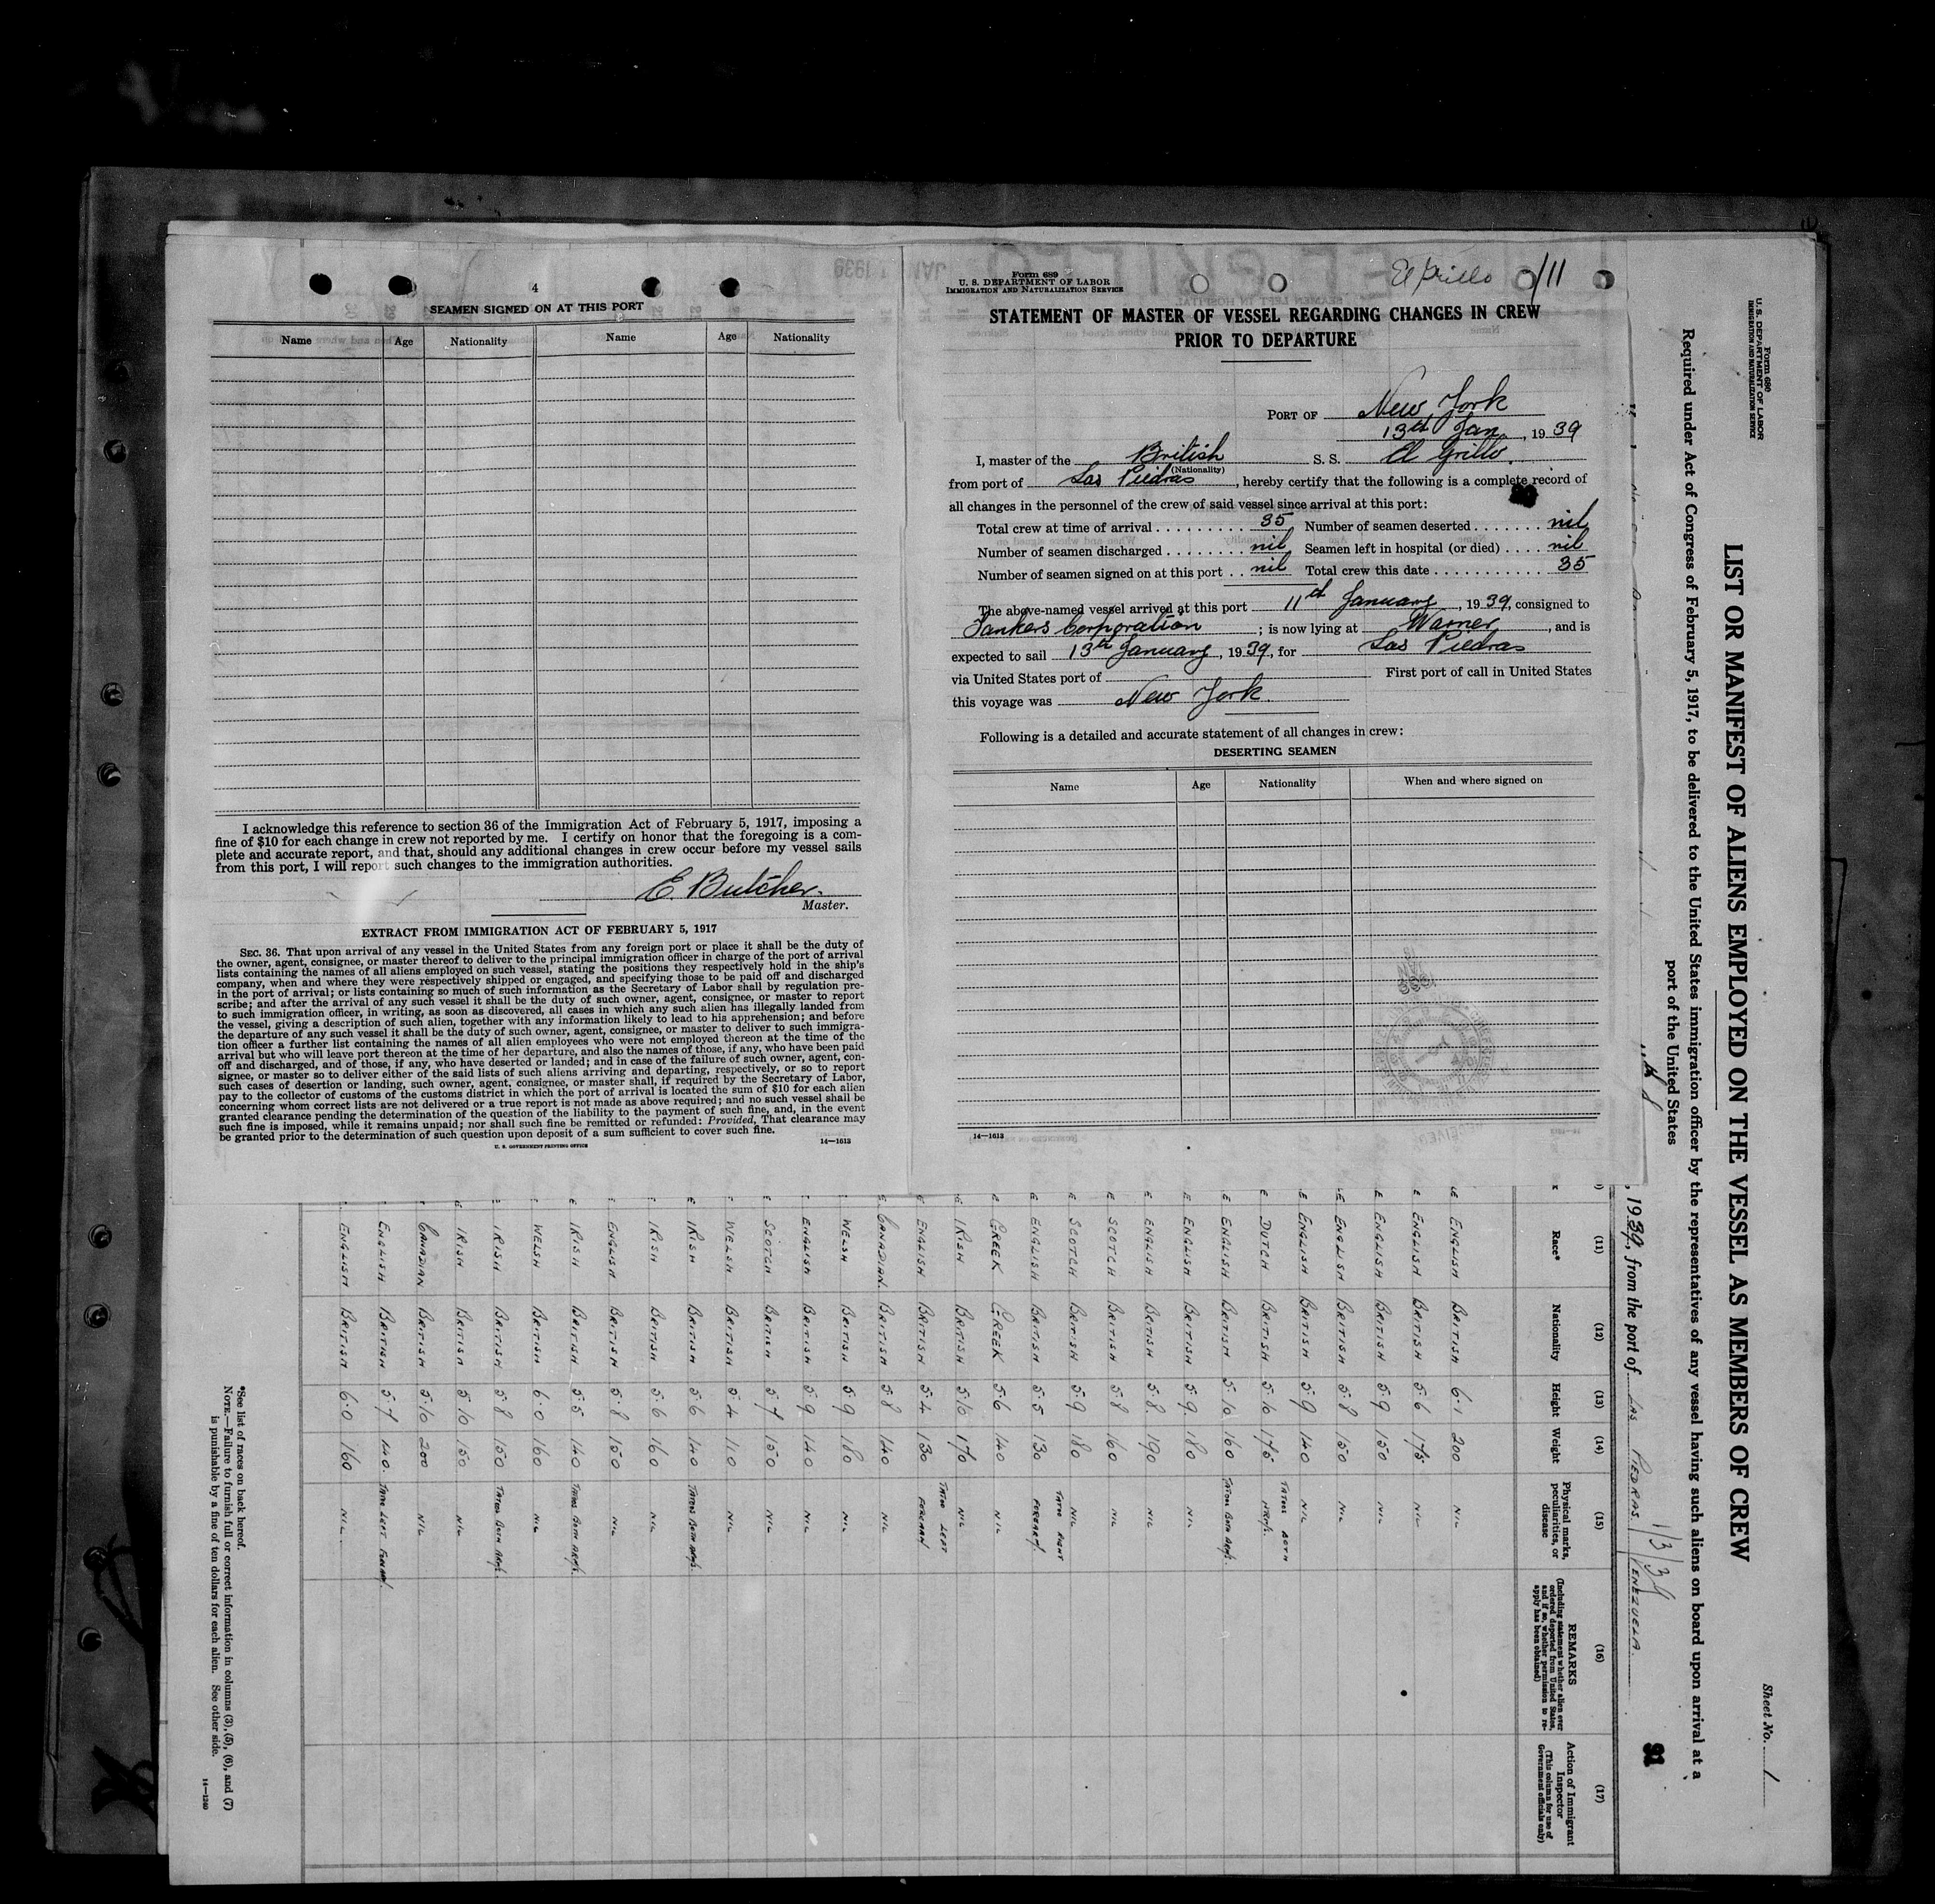 4
SEAMEN SIGNED ON AT THIS PORT
Name Age Nationality Name Age Nationality
I acknowledge this reference to section 36 of the Immigration Act of February 5, 1917, imposing a
fine of $10 for each change in crew not reported by me. I certify on honor that the foregoing is a com-
plete and accurate report, and that, should any additional changes in crew occur before my vessel sails
from this port, I will report such changes to the immigration authorities.
E. Butcher.
Master.
EXTRACT FROM IMMIGRATION ACT OF FEBRUARY 5, 1917
SEC. 36. That upon arrival of any vessel in the United States from any foreign port or place it shall be the duty of
the owner, agent, consignee, or master thereof to deliver to the principal immigration officer in charge of the port of arrival
lists containing the names of all aliens employed on such vessel, stating the positions they respectively hold in the ship's
company, when and where they were respectively shipped or engaged, and specifying those to be paid off and discharged
in the port of arrival; or lists containing so much of such information as the Secretary of Labor shall by regulation pre-
scribe; and after the arrival of any such vessel it shall be the duty of such owner, agent, consignee, or master to report
to such immigration officer, in writing, as soon as discovered, all cases in which any such alien has illegally landed from
the vessel, giving a description of such alien, together with any information likely to lead to his apprehension; and before
the departure of any such vessel it shall be the duty of such owner, agent, consignee, or master to deliver to such immigra-
tion officer a further list containing the names of all alien employees who were not employed thereon at the time of the
arrival but who will leave port thereon at the time of her departure, and also the names of those, if any, who have been paid
off and discharged, and of those, if any, who have deserted or landed; and in case of the failure of such owner, agent, con-
signee, or master so to deliver either of the said lists of such aliens arriving and departing, respectively, or so to report
such cases of desertion or landing, such owner, agent, consignee, or master shall, if required by the Secretary of Labor,
pay to the collector of customs of the customs district in which the port of arrival is located the sum of $10 for each alien
concerning whom correct lists are not delivered or a true report is not made as above required; and no such vessel shall be
granted clearance pending the determination of the question of the liability to the payment of such fine, and, in the event
such fine is imposed, while it remains unpaid; nor shall such fine be remitted or refunded: Provided, That clearance may
be granted prior to the determination of such question upon deposit of a sum sufficient to cover such fine.
U. S. GOVERNMENT PRINTING OFFICE 14—1613
Form 689
U. S. DEPARTMENT OF LABOR
IMMIGRATION AND NATURALIZATION SERVICE
El Grillo 1/11
STATEMENT OF MASTER OF VESSEL REGARDING CHANGES IN CREW
PRIOR TO DEPARTURE
PORT OF New York
13th Jan, 1939
I, master of the British S. S. El Grillo.
(Nationality)
from port of Las Piedras, hereby certify that the following is a complete record of
all changes in the personnel of the crew of said vessel since arrival at this port:
Total crew at time of arrival 35 Number of seamen deserted nil
Number of seamen discharged nil Seamen left in hospital (or died) nil
Number of seamen signed on at this port nil Total crew this date 35
The above-named vessel arrived at this port 11th January, 1939, consigned to
Tankers Corporation; is now lying at Warner, and is
expected to sail 13th January, 1939, for Las Piedras
via United States port of First port of call in United States
this voyage was New York.
Following is a detailed and accurate statement of all changes in crew:
DESERTING SEAMEN
Name Age Nationality When and where signed on
14—1613
Form 680
U. S. DEPARTMENT OF LABOR
IMMIGRATION AND NATURALIZATION SERVICE
Sheet No. 1
LIST OR MANIFEST OF ALIENS EMPLOYED ON THE VESSEL AS MEMBERS OF CREW
Required under Act of Congress of February 5, 1917, to be delivered to the United States immigration officer by the representatives of any vessel having such aliens on board upon arrival at a
port of the United States
91
, 1939, from the port of LAS PIEDRAS. VENEZUELA.
(11) (12) (13) (14) (15) (16) (17)
Race* Nationality Height Weight Physical marks, peculiarities, or disease REMARKS (Including statement whether alien ever ordered deported from United States, and if so, whether permission to re-apply has been obtained) Action of Immigrant Inspector (This column for use of Government officials only)
ENGLISH BRITISH 6·1 200 NIL
ENGLISH BRITISH 5·6 175 NIL
ENGLISH BRITISH 5·9 150 NIL
ENGLISH BRITISH 5·8 150 NIL
ENGLISH BRITISH 5·9 140 NIL
DUTCH BRITISH 5·10 175 TATOO BOTH ARMS.
ENGLISH BRITISH 5·10 160 TATOO BOTH ARMS.
ENGLISH BRITISH 5·9 180 NIL
ENGLISH BRITISH 5·8 190 NIL
SCOTCH BRITISH 5·8 160 NIL
SCOTCH BRITISH 5·9 180 NIL
ENGLISH BRITISH 5·5 130 TATOO RIGHT FOREARM.
GREEK GREEK 5·6 140 NIL
IRISH BRITISH 5·10 170 NIL
ENGLISH BRITISH 5·4 130 TATOO LEFT FOREARM
CANADIAN. BRITISH 5·8 140 NIL
WELSH BRITISH 5·9 180 NIL
ENGLISH BRITISH 5·9 140 NIL
SCOTCH BRITISH 5·7 150 NIL
WELSH BRITISH 5·4 110 NIL
IRISH BRITISH 5·6 140 TATOO BOTH ARMS.
IRISH BRITISH 5·6 160 NIL
ENGLISH BRITISH 5·8 150 NIL
IRISH BRITISH 5·5 140 TATOO BOTH ARMS.
WELSH BRITISH 6·0 160 NIL
IRISH BRITISH 5·8 150 TATOO BOTH ARMS.
IRISH BRITISH 5·10 150 NIL
CANADIAN BRITISH 5·10 200 NIL
ENGLISH BRITISH 5·7 140.
ENGLISH BRITISH 6·0 160 NIL.
*See list of races on back hereof.
NOTE.—Failure to furnish full or correct information in columns (3), (5), (6), and (7)
is punishable by a fine of ten dollars for each alien. See other side.
14—1240